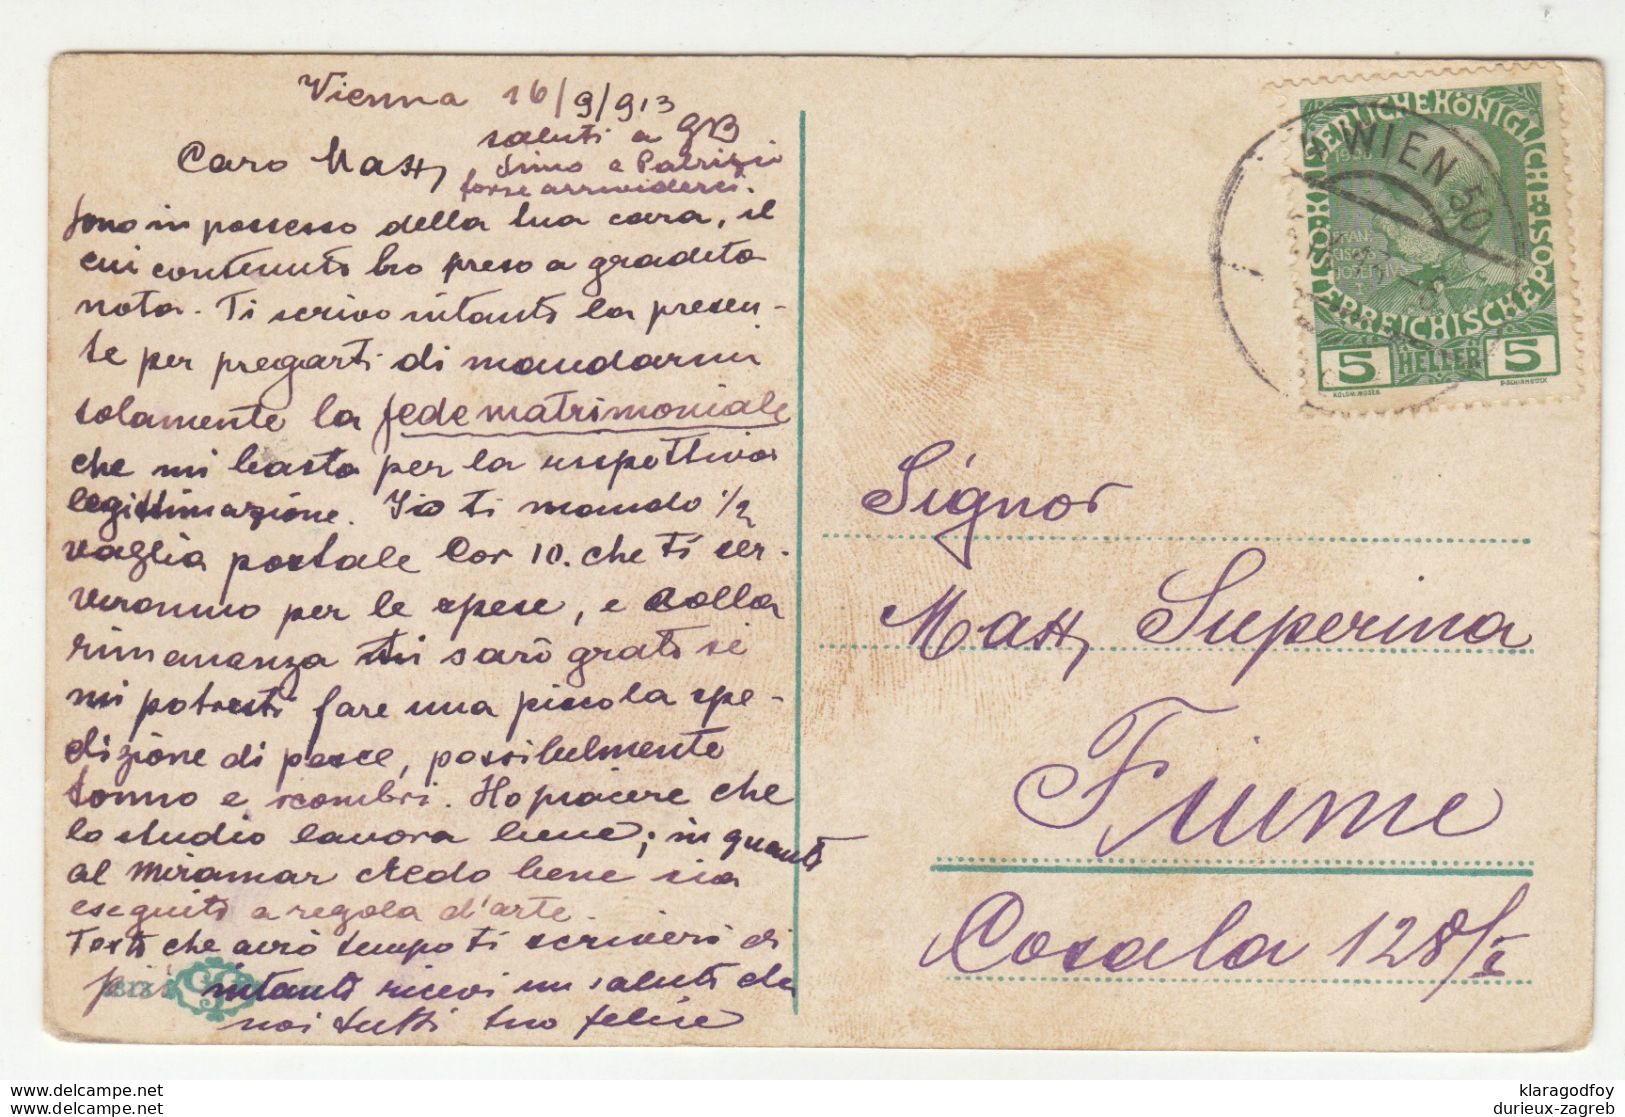 Vienna 16/9/913
saluti a GB
Caro Matty
Simo e Patrizio
forse arrivederci.
sono in possesso della tua cara, il
cui contenuto ho preso a gradita
nota. Ti scrivo intanto la presen-
te per pregarti di mandarmi
solamente la fede matrimoniale
che mi basta per la rispettiva
legittimazione. Io ti mando ½
vaglia postale Cor 10. che ti ser-
veranno per le spese, e colla
rimananza ti sarò grato se
mi potresti fare una piccola spe-
dizione di pesce, possibilmente
tonno e scombri. Ho piacere che
lo studio lavora bene; in quanto
al Miramar credo bene sia
eseguito a regola d'arte.
Tosto che avrò tempo ti scriverò di
più intanto ricevi un saluto da
noi tutti tuo felice
WIEN 50
KAISERLICHE KÖNIGLICHE ÖSTERREICHISCHE POST
5 HELLER 5
KOLOM. MOSER
F. SCHIRNBÖCK
Signor
Matty Superina
Fiume
Cosala 128/I
klaragodfoy
delcampe.net durieux-zagreb